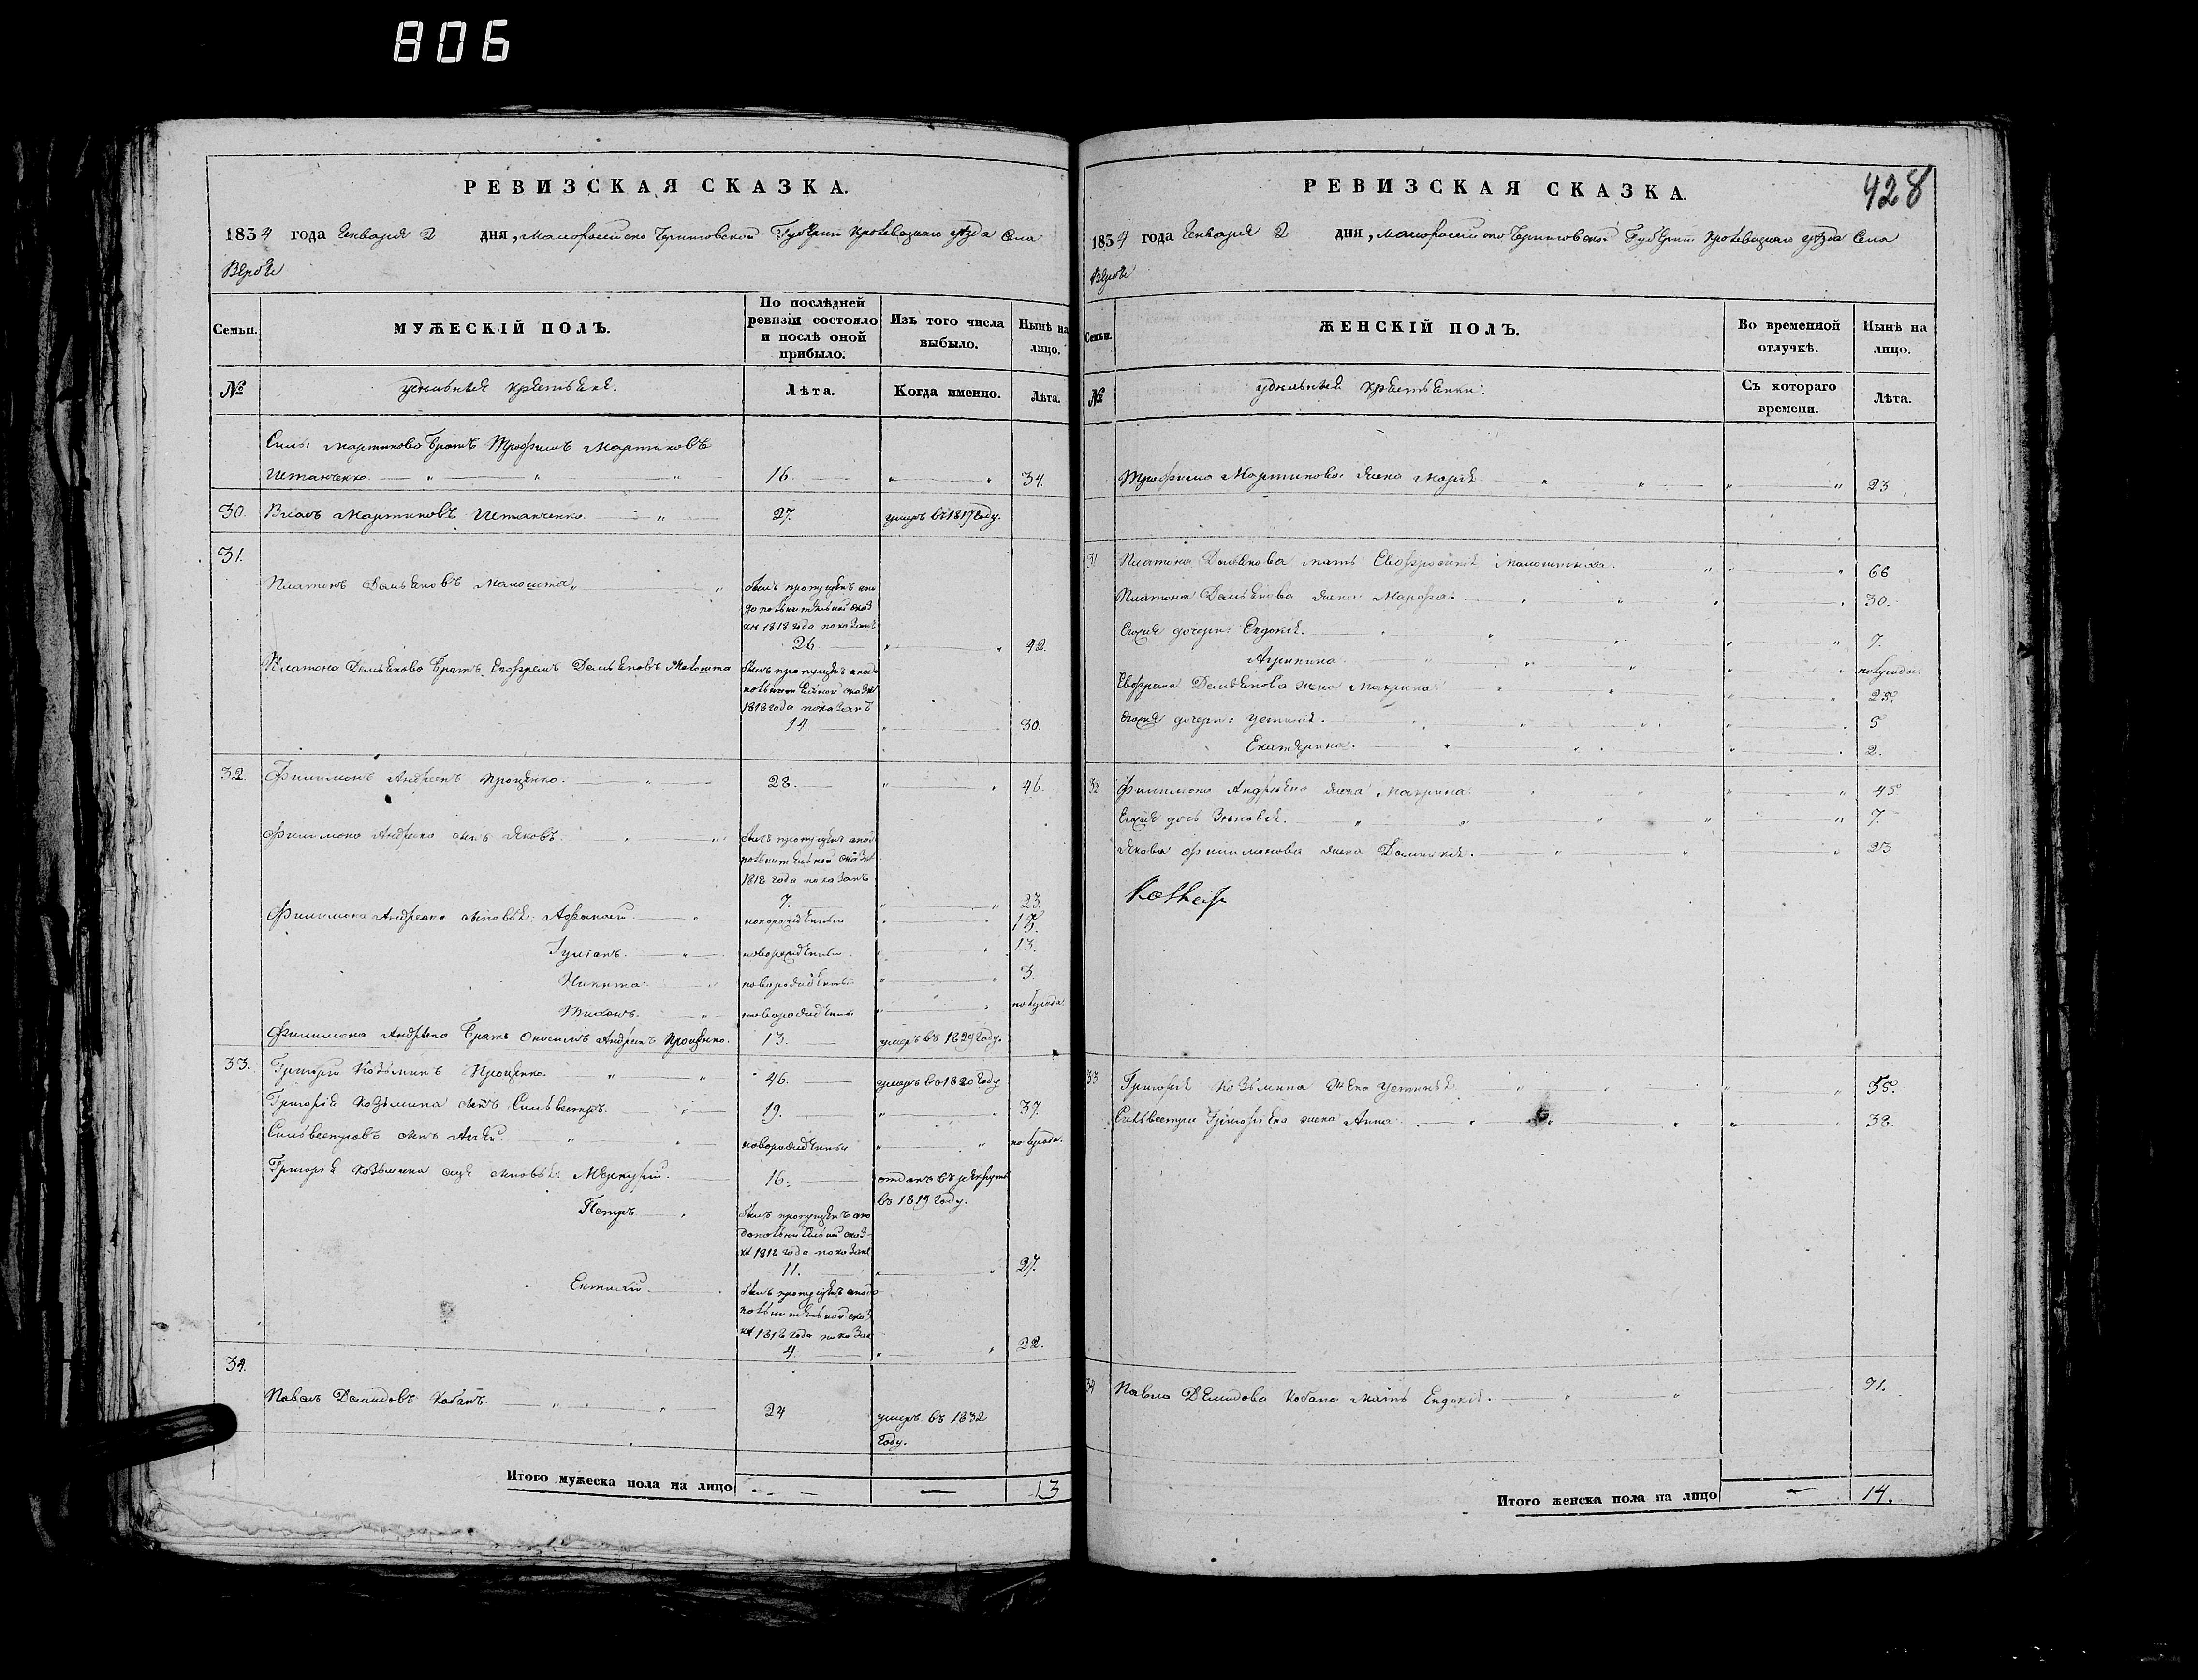 806
РЕВИЗСКАЯ СКАЗКА.
1834 года Генваря 2 дня, Малороссийско Черниговской Губерніи Кролевецкаго уезда Села
По послѣдней ревизіи состояло и послѣ оной прибыло.
Семьи. МУЖЕСКІЙ ПОЛЪ. Изъ того числа выбыло. Нынѣ на лицо.
№ удельныя крестьяне. Лѣта. Когда именно. Лѣта.
Силы Мартинова братъ Трофимъ Мартиновъ
16. 34.
30. Власъ Мартиновъ 27. умеръ въ 1817 году.
31.
Платонъ Демьяновъ былъ пропущенъ а по
дополнительной сказ
ке 1818 года показанъ
26 42.
Платона Демьянова братъ Ефремъ Демьяновъ былъ пропущенъ а по до
полнительной сказке
1818 года показанъ
14. 30.
32. Филимонъ Андреевъ Проценко. 28. 46.
Филимона Андреева сынъ Яковъ. былъ пропущенъ а по до
полнительной сказке
1818 года показанъ
7. 23.
Филимона Андреева сыновья: Афанасій. новорожденный
Гуліанъ. новорожденный 13.
Никита. новорожденный 3.
Тихонъ. новорожденный полугода
Филимона Андреева братъ Онисимъ Андреевъ Проценко. 13. умеръ въ 1829 году.
33. Григорій Козьминъ Проценко. 46. умеръ въ 1820 году
Григорія Козьмина сынъ Сильвестръ. 19. 37.
Сильвестровъ сынъ новорожденный полугода.
Григорія Козьмина еще сыновья: Меркурій. 16. отданъ въ рекруты
въ 1819 году.
Петръ былъ пропущенъ а по
дополнительной сказ
ке 1818 года показанъ
11. 27.
былъ пропущенъ а по до
полнительной сказ
ке 1818 года показан
4. 22.
34.
Павелъ Демидовъ Кобанъ. 24 умеръ въ 1832
году.
Итого мужеска пола на лицо 13
РЕВИЗСКАЯ СКАЗКА. 428
1834 года Генваря 2 дня, Малороссийско Черниговской Губерніи Кролевецкаго уезда Села
Семьи. ЖЕНСКІЙ ПОЛЪ. Во временной отлучкѣ. Нынѣ на лицо.
№ удельныя крестьянки. Съ котораго времени. Лѣта.
Трофима Мартинова жена Марія 23
31 Платона Демьянова мать Евфросинія 66
Платона Демьянова жена Марфа. 30.
Егоже дочери: Евдокія. 7.
Агрипина. полугода.
Ефрема Демьянова жена Макрина. 25.
Егоже дочери: Устинія. 5
Екатерина. 2.
32 Филимона Андреева жена Макрина. 45
Егоже дочь Зеновія. 7.
Якова Филимонова жена Домникія. 23
33 Григорія Козьмина жена Устинія 55.
Сильвестра Григорьева жена Анна 38.
34 Павла Демидова Кобана мать Евдокія. 71.
Итого женска пола на лицо 14.